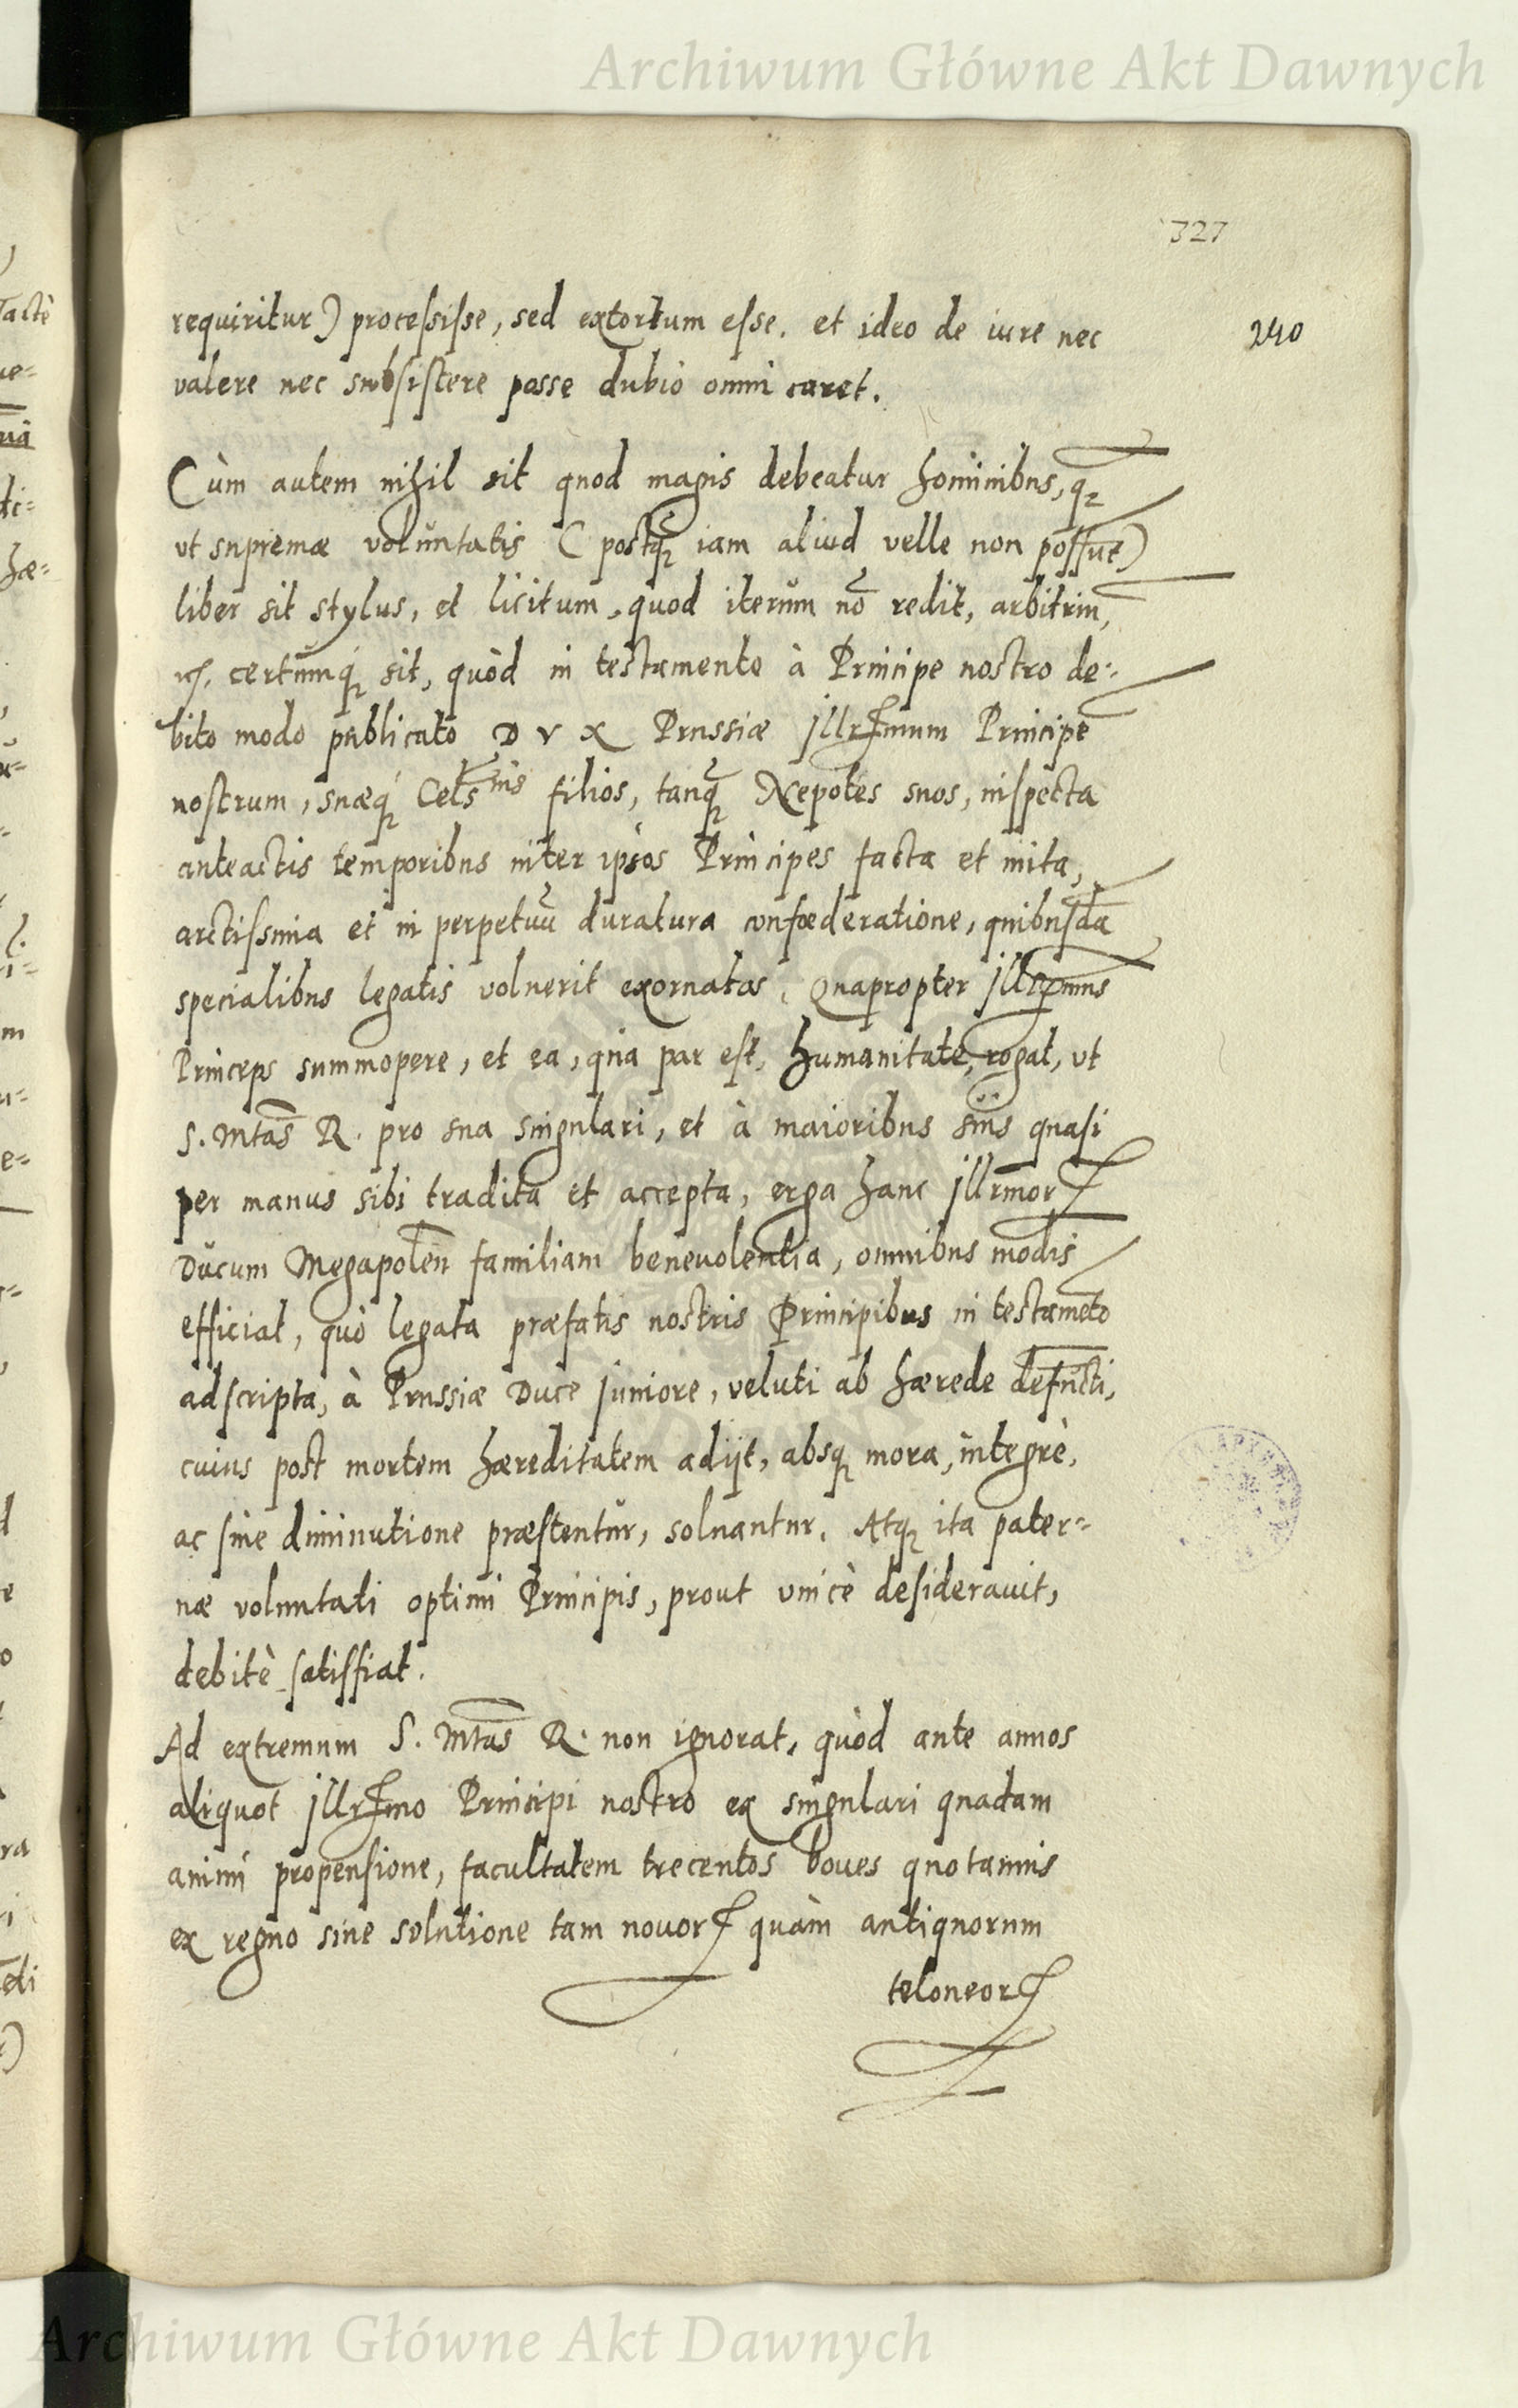 Archiwum Główne Akt Dawnych
327
240
requiritur) processisse, sed extortum esse. et ideo de iure nec
valere nec subsistere posse dubio omni caret.
Cùm autem nihil sit quod magis debeatur hominibus, qz
ut supremæ voluntatis (postq̃ iam aliud velle non possũt)
liber sit stylus, et licitum, quod iterum nõ redit, arbitriũ,
certumq́ sit, quòd in testamento à Principe nostro de:
bito modo publicato DVX Prussiæ Jllr̃mum Principẽ
nostrum, suæq́ Cels^nis filios, tanq̃ Nepotes suos, inspecta
anteactis temporibus inter ipsos Principes facta et inita,
arctissima et in perpetuũ duratura confœderatione, quibusdã
specialibus legatis voluerit exornatos. Quapropter Jllr̃mus
Princeps summopere, et ea, qua par est, humanitate, rogat, ut
S. Mtas̃ R. pro sua singulari, et à maioribus suis quasi
per manus sibi tradita et accepta, erga hanc Jllr̃morꝝ
Ducum Megapoleñ familiam beneuolentia, omnibus modis
efficiat, quò legata præfatis nostris Principibus in testamẽto
adscripta, à Prussiæ Duce Juniore, veluti ab hærede defũcti,
cuius post mortem hæreditatem adijt, absq; mora, integrè,
ac sine diminutione præstentur, soluantur. Atq; ita pater=
næ voluntati optimi Principis, prout vnicè desiderauit,
debitè satisfiat.
Ad extremum S. Mtas̃ R. non ignorat, quòd ante annos
aliquot Jllr̃mo Principi nostro ex singulari quadam
animi propensione, facultatem trecentos boues quotannis
ex regno sine solutione tam nouorꝝ quàm antiquorum
teloneorꝝ
Archiwum Główne Akt Dawnych